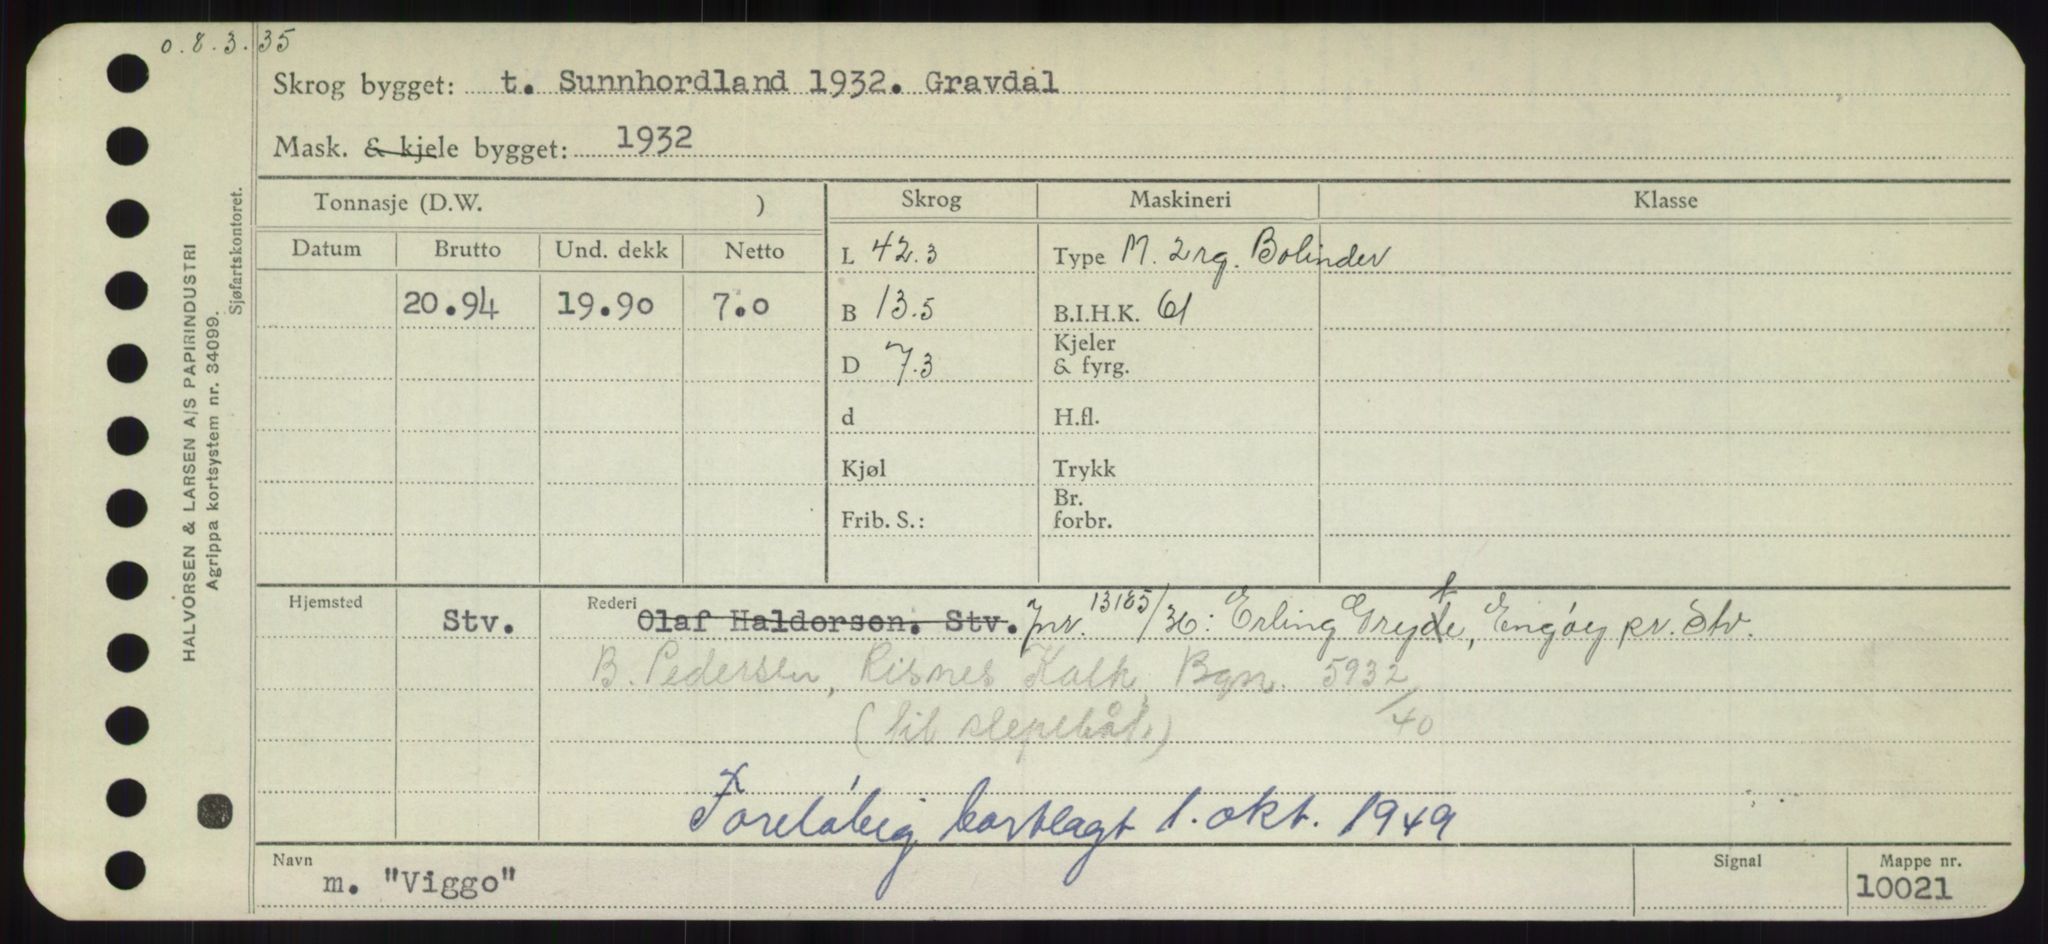 o.8.3.35
Skrog bygget: t. Sunnhordland 1932. Gravdal
Mask. & kjele bygget: 1932
Tonnasje (D.W. )
Skrog
Maskineri
Klasse
Datum Brutto Und. dekk Netto
L 42.3
Type M. 2rg. Bolinder
20.94 19.90 7.0
B 13.5
B.I.H.K. 61
D 7.3
Kjeler
& fyrg.
d
H.fl.
Kjøl
Trykk
Frib. S.:
Br.
forbr.
Hjemsted Stv.
Rederi Olaf Haldorsen. Stv. Jnr. 13185/36: Erling Gryte, Engøy pr. Stv.
B. Pedersen, Risnes Kalk, Bgn. 5932/40
(til slepebåt.)
Foreløbig bortlagt 1. okt. 1949
Navn m. "Viggo"
Signal
Mappe nr. 10021
HALVORSEN & LARSEN A/S PAPIRINDUSTRI
Agrippa kortsystem nr. 34099.
Sjøfartskontoret.